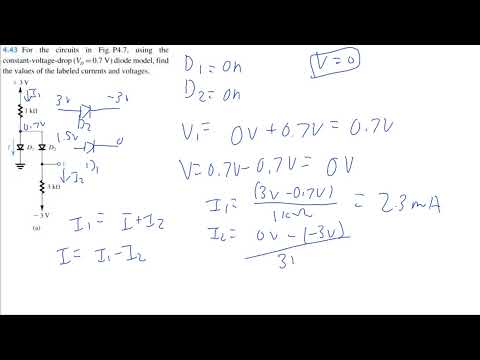 4.43 For the circuits in Fig. P4.7, using the
constant-voltage-drop (V_D = 0.7 V) diode model, find
the values of the labeled currents and voltages.
+ 3 V
I1
1 kΩ
0.7V
I
D1
D2
I2
3 kΩ
− 3 V
(a)
3V
-3V
D2
1.5V
0
D1
I1 = I+I2
I = I1-I2
D1 = on
D2 = on
V=0
V1 = 0V + 0.7V = 0.7V
V=0.7V-0.7V = 0V
I1 = (3V-0.7V) / 1kΩ = 2.3mA
I2 = 0V-(-3V) / 3